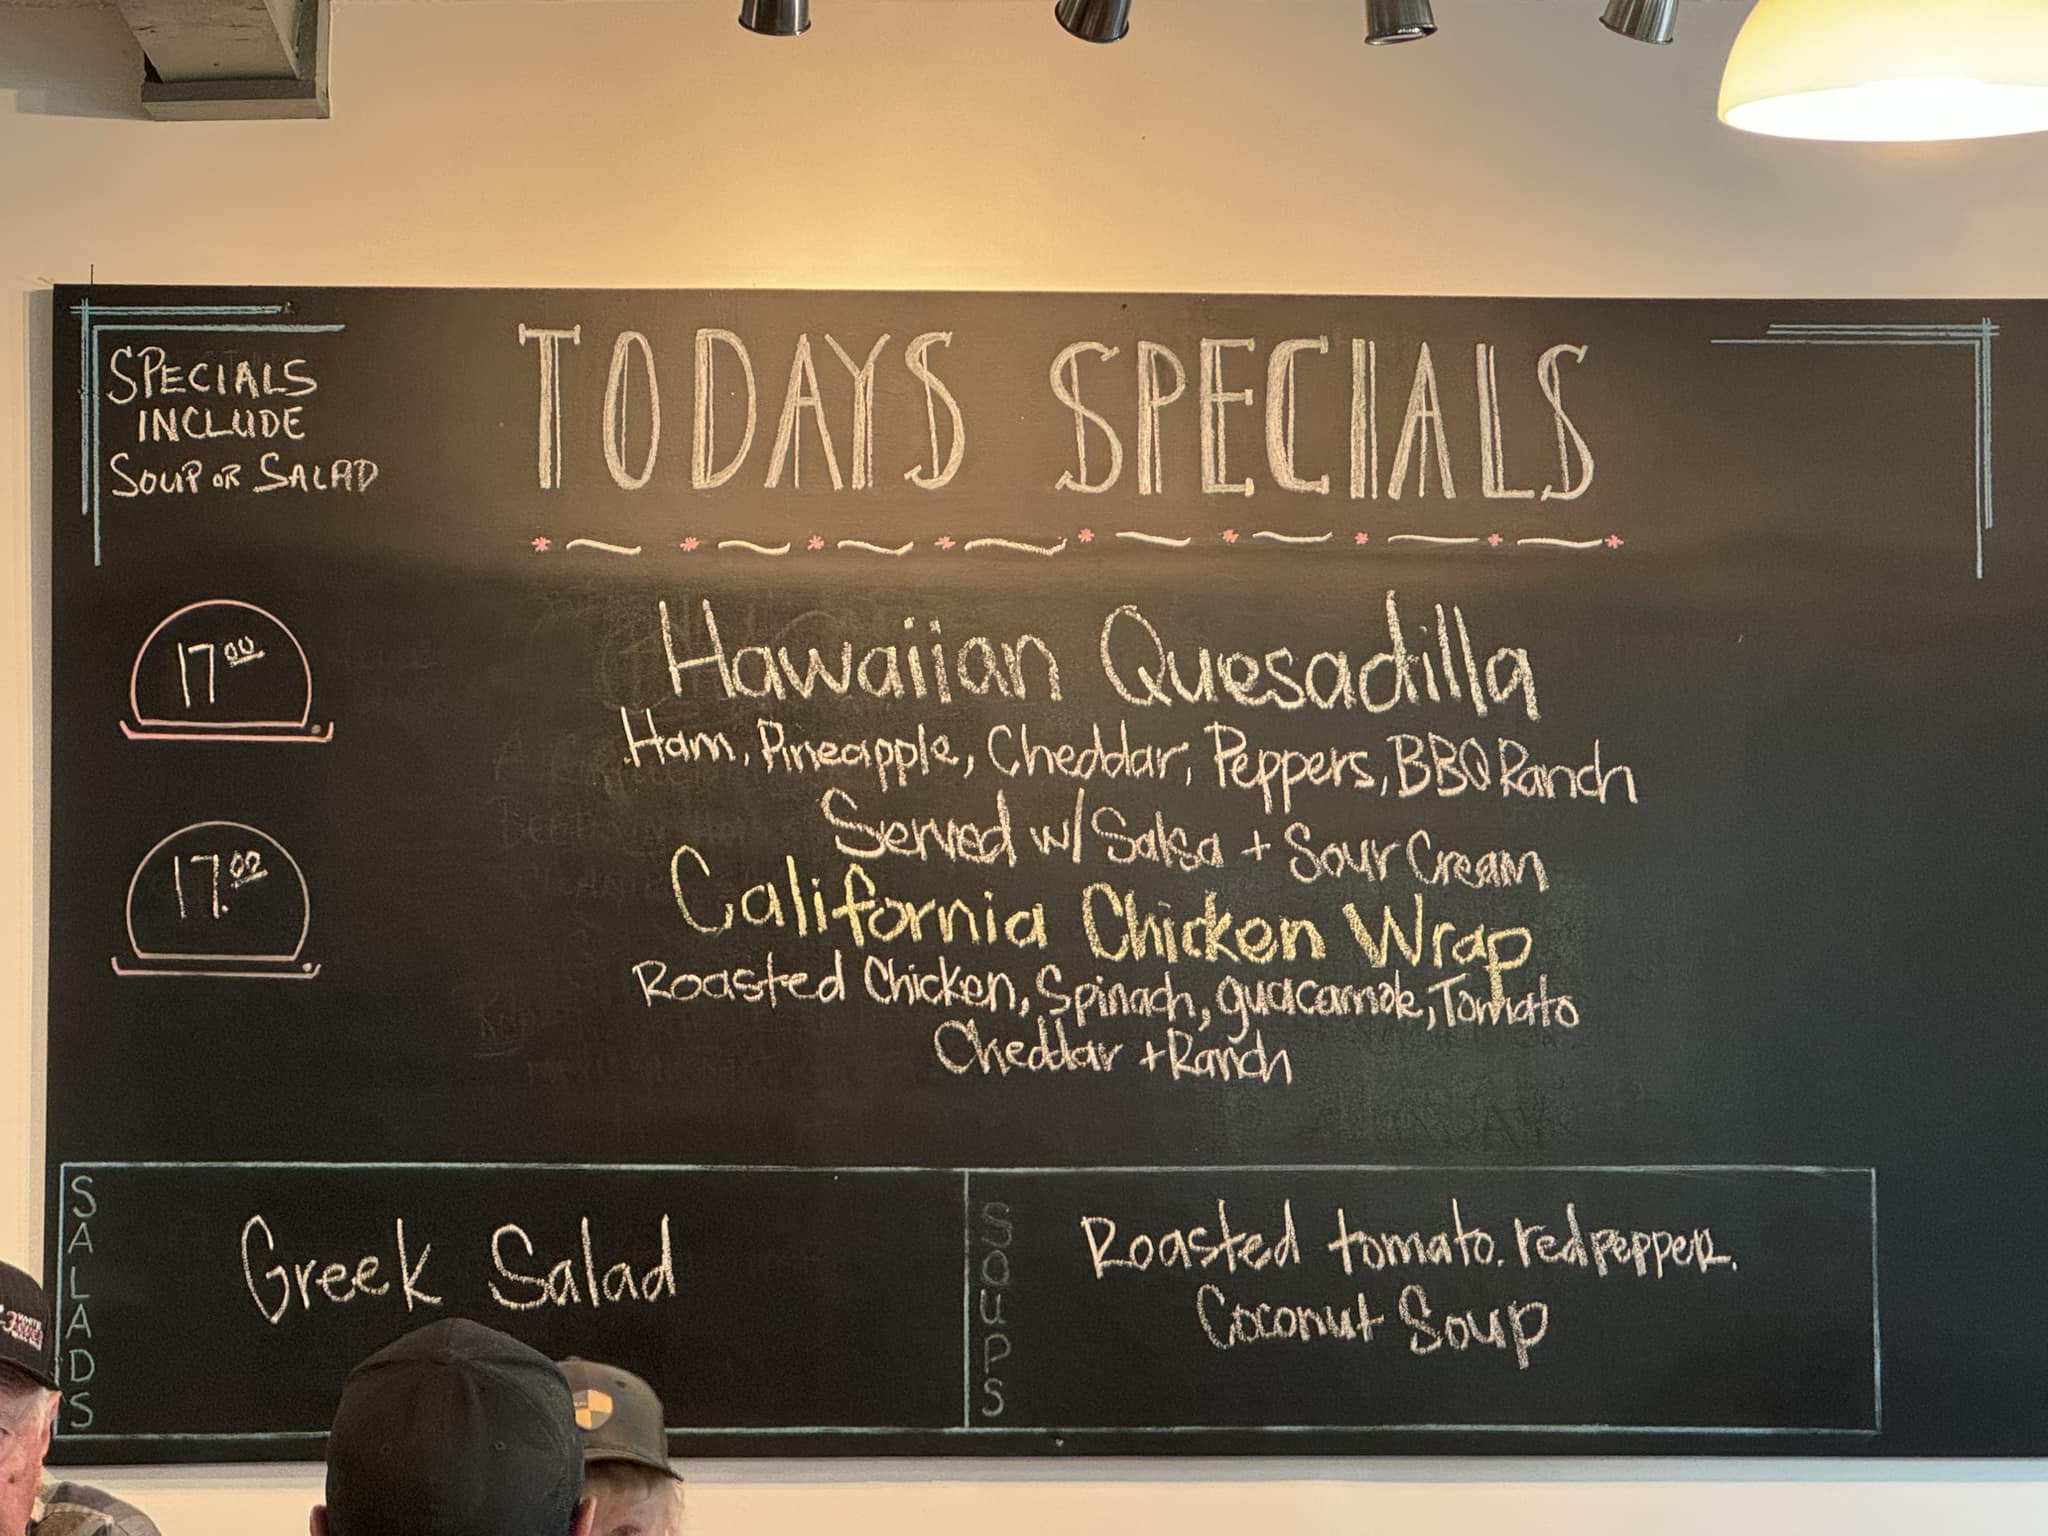 SPECIALS
INCLUDE
SOUP OR SALAD
TODAYS SPECIALS
17.00
Hawaiian Quesadilla
Ham, Pineapple, Cheddar, Peppers, BBQ Ranch
Served w/ Salsa + Sour Cream
17.00
California Chicken Wrap
Roasted Chicken, Spinach, guacamole, Tomato
Cheddar + Ranch
SALADS
Greek Salad
SOUPS
Roasted tomato. red pepper.
Coconut Soup